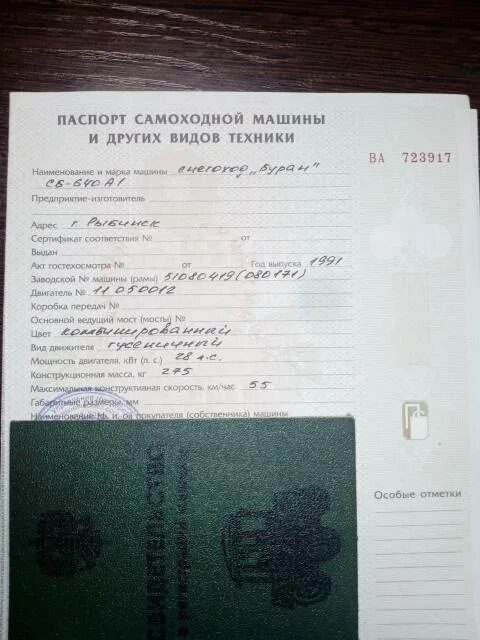 ПАСПОРТ САМОХОДНОЙ МАШИНЫ
И ДРУГИХ ВИДОВ ТЕХНИКИ
ВА 723917
Наименование и марка машины снегоход „Буран"
СБ-640 А1
Предприятие-изготовитель
Адрес г. Рыбинск
Сертификат соответствия № от
Выдан
Акт гостехосмотра № от Год выпуска 1991
Заводской № машины (рамы) 51080419 (080171)
Двигатель № 11050012
Коробка передач №
Основной ведущий мост (мосты) №
Цвет комбинированный
Вид движителя гусеничный
Мощность двигателя, кВт (л. с.) 28 л.с.
Конструкционная масса, кг 275
Максимальная конструктивная скорость, км/час 55
Габаритные размеры, мм
Наименование (ф. и. о.) покупателя (собственника) машины
Особые отметки
СВИДЕТЕЛЬСТВО
о регистрации машины